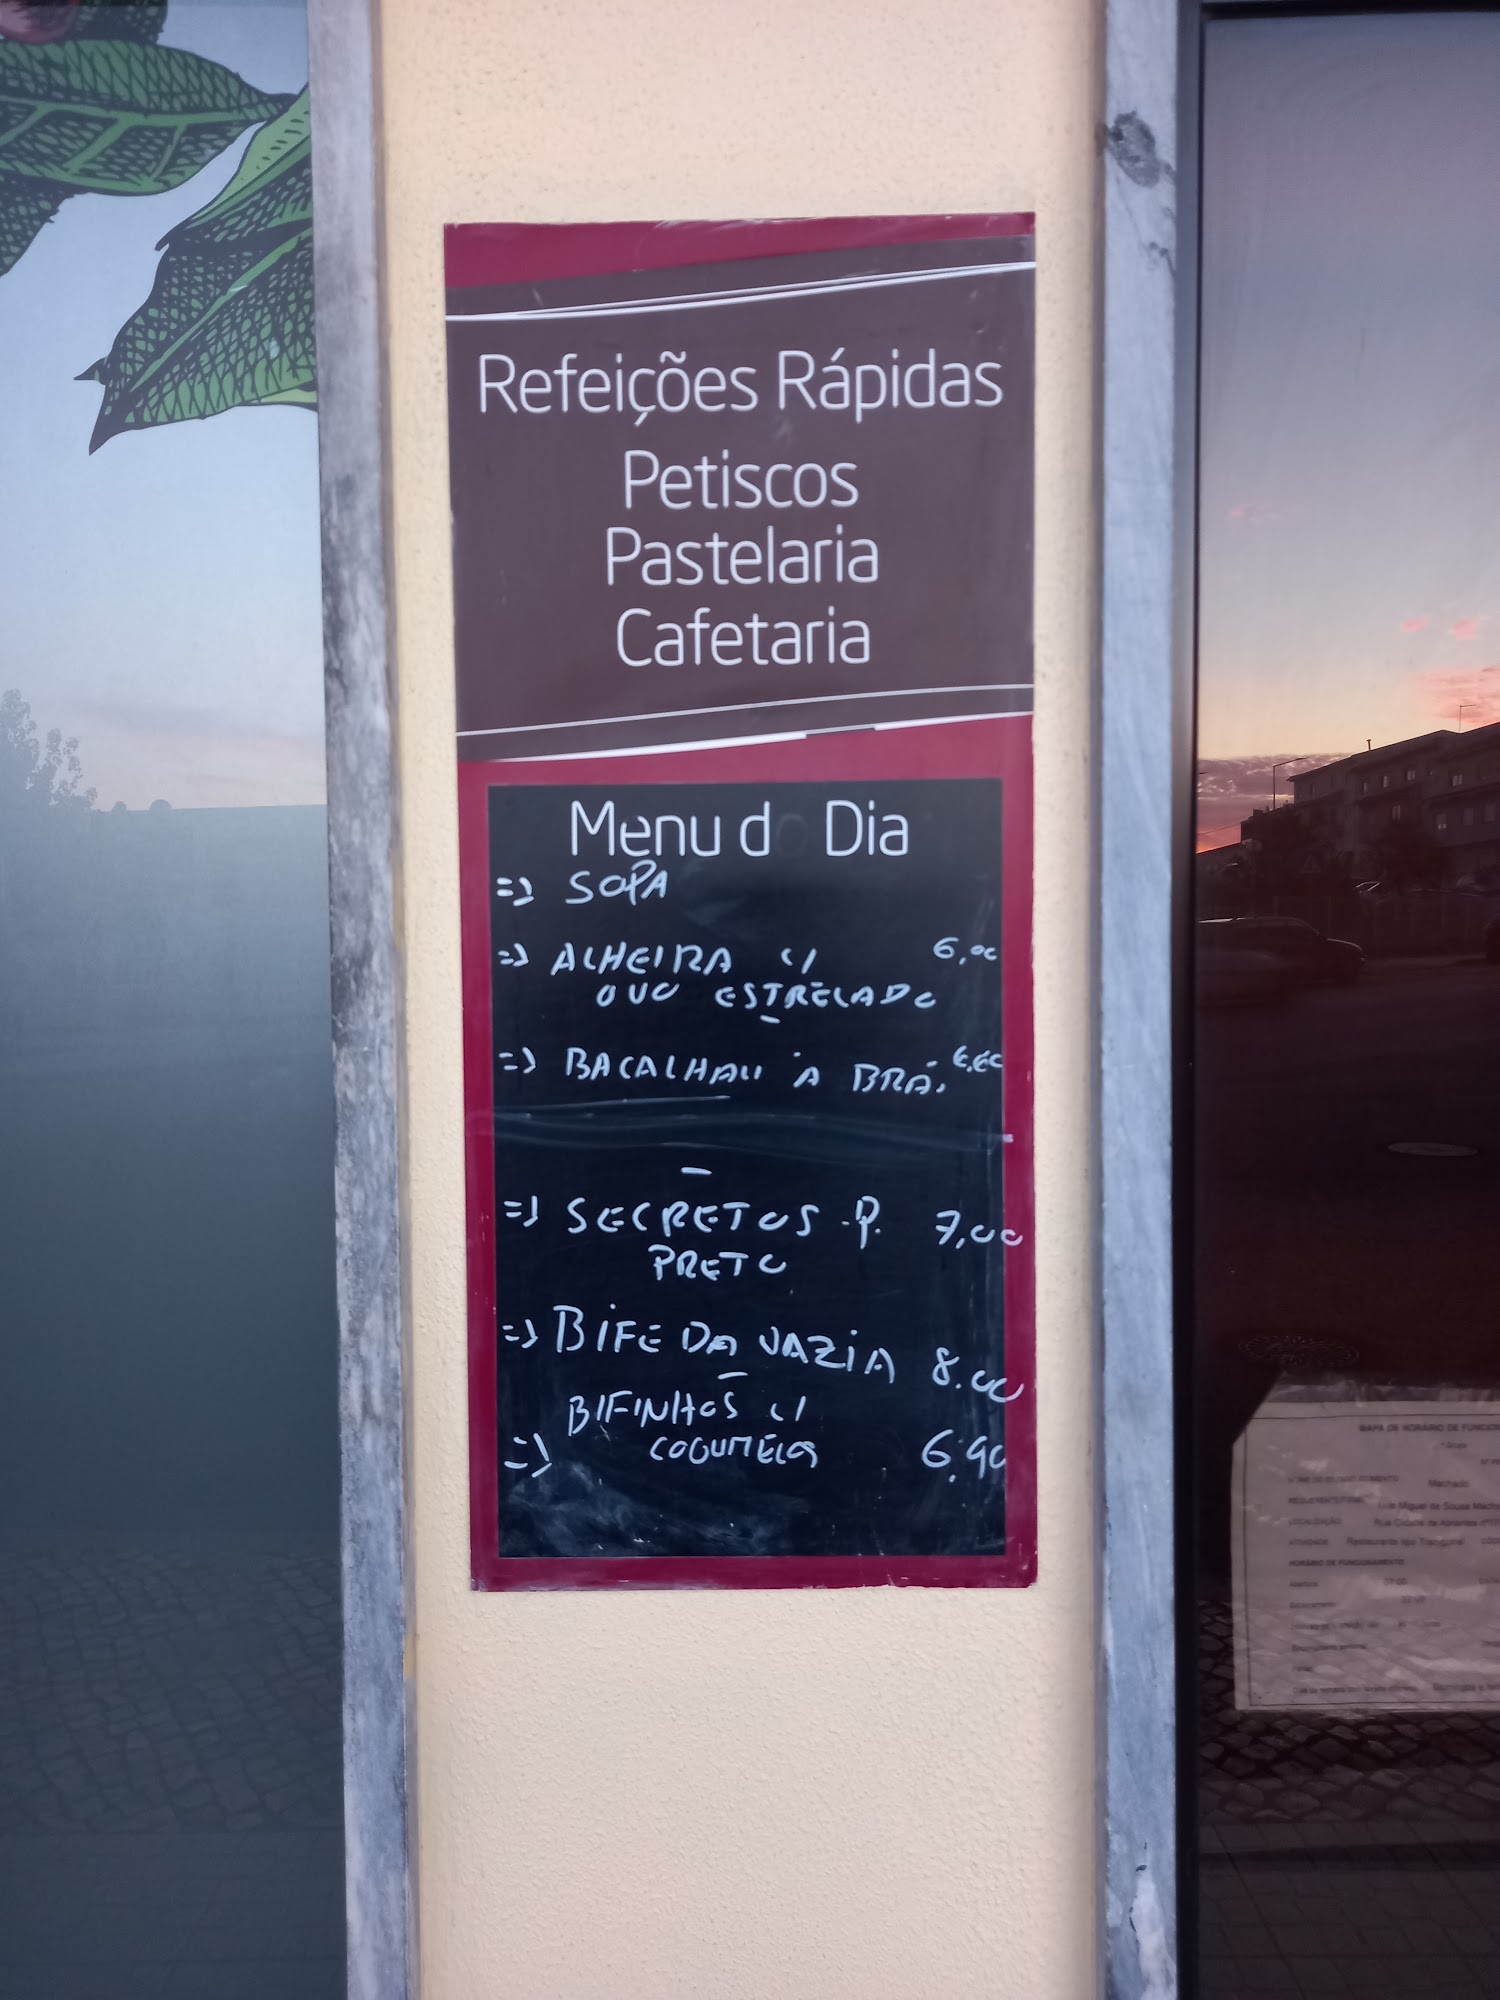 Refeições Rápidas
Petiscos
Pastelaria
Cafetaria
Menu do Dia
=> SOPA
=> ALHEIRA C/ 6,00
OVO ESTRELADO
=> BACALHAU À BRÁ.
=> SECRETOS P. 7,00
PRETO
=> BIFE DA VAZIA 8.00
BIFINHOS C/
=> COGUMELOS 6,90
MAPA DE HORÁRIO DE FUNCION
Machado
Luis Miguel de Sousa Mach
LOCALIZAÇÃO Rua Cidade de Abrantes nº
ATIVIDADE Restaurante tipo Tradicional
HORÁRIO DE FUNCIONAMENTO
Abertura